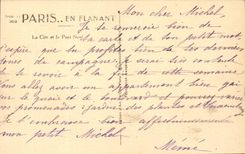 PARIS.. EN FLANANT
La Cité et le Pont Neuf
Mon cher Michel,
Je te remercie bien de
ta carte et de ton petit mot,
j'espère que tu profites bien de tes derniers
jours de campagne, je serai très contente
de te revoir à la fin de cette semaine
vous allez avoir un appartement bien gai
sur le quai et le boulevard et pour
vos promenades : jardin des plantes et
Je t'embrasse bien affectueusement
mon petit Michel
Mémé